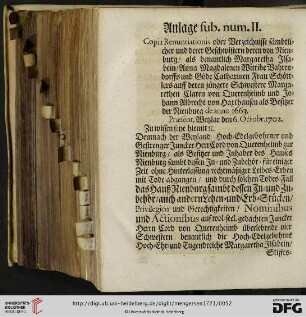 Anlage sub. num. II.
Copia Renuntiationis oder Verzeichnüsse sämbtli-
cher und derer Geschwistern deren von Nien-
burg/ als benantlich Margaretha Ilsa-
bein/ Anna Magdalenen
und Gödt Catharinen Frau
auff deren jüngere Schwestere Marga-
rethen Claren von Quernheimb und Jo-
hann Albrecht von Haxthausen als Besitzer
der Nienburg de anno 1663.
Præsent. Wetzlar den 6. Octobr. 1702.
Zuwissen sey hiemit
Demnach der Weyland Hoch-Edelgebohrner und
Gestrenger Juncker Herr Cord von Quernheimb zur
Nienburg/ als Besitzer und Inhaber des Hauses
Nienburg sambt dessen In- und Zubehör/ für einiger
Zeit ohne Hinterlassung rechtmässiger Leibes Erben
mit Tod abgangen/ und durch solchen Todes-Fall
das Hauß Nienburg sambt dessen In- und Zu-
behör/ auch andern Lehen und Erb-Stücken/
Privilegien und Gerechtigkeiten/ Nominibus
und Actionibus auf wol seel. gedachten Juncker
Herrn Cord von Quernheimb überlebende vier
Schwestern benantlich die Hoch-Edelgebohrne
Hoch-Ehr und Tugendreiche Margaretha Ilsabein/
Stiffts-
http://digi.ub.uni-heidelberg.de/diglit/mengersen1721/0052
© Universitätsbibliothek Heidelberg